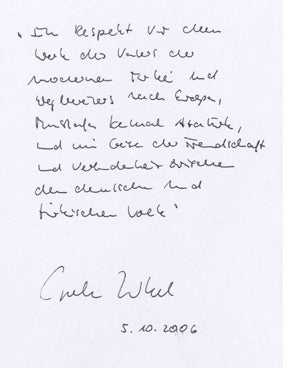 "In Respekt vor dem
Werk des Vaters der
modernen Türkei und
Wegweisers nach Europa,
Mustafa Kemal Atatürk,
und im Geiste der Freundschaft
und Verbundenheit zwischen
dem deutschen und
türkischen Volk"
5.10.2006